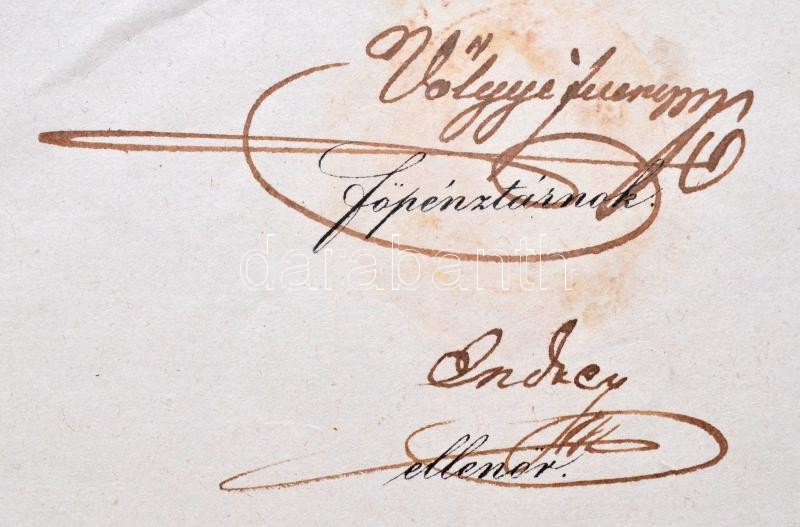 Völgyi
főpénztárnok.
darabanth
Endrey
ellenőr.